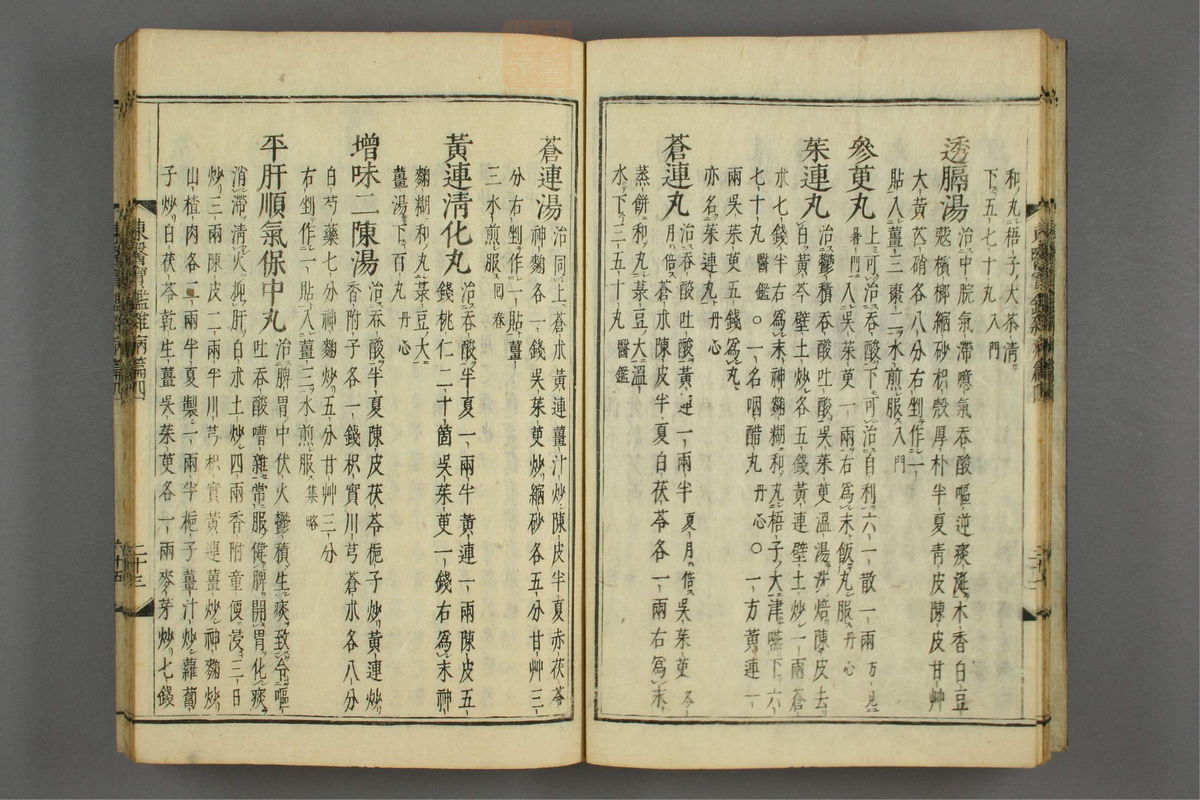 和丸梧子大茶清
下五七十丸入門
透膈湯治中脘氣滯噫氣吞酸嘔逆痰涎木香白豆
蔻檳榔縮砂枳殼厚朴半夏靑皮陳皮甘艸
大黃芒硝各八分右剉作一
貼入薑三棗二水煎服入門
參萸丸上可治吞酸下可治自利六一散一兩方見
暑門入吳茱萸一兩右爲末飯丸服丹心
茱連丸治鬱積吞酸吐酸吳茱萸溫湯洗焙陳皮去
白黃芩壁土炒各五錢黃連壁土炒一兩蒼
朮七錢半右爲末神麴糊和丸梧子大津嚥下六
七十丸醫鑑○一名咽醋丸丹心○一方黃連一
兩吳茱萸五錢爲丸
亦名茱連丸丹心
蒼連丸治吞酸吐酸黃連一兩半夏月倍吳茱萸冬
月倍蒼朮陳皮半夏白茯苓各一兩右爲末
蒸餠和丸菉豆大溫
水下三五十丸醫鑑
蒼連湯治同上蒼朮黃連薑汁炒陳皮半夏赤茯苓
神麴各一錢吳茱萸炒縮砂各五分甘艸三
分右剉作一貼薑
三水煎服回春
黃連淸化丸治吞酸半夏一兩半黃連一兩陳皮五
錢桃仁二十箇吳茱萸一錢右爲末神
麴糊和丸菉豆大
薑湯下百丸丹心
增味二陳湯治吞酸半夏陳皮茯苓梔子炒黃連炒
香附子各一錢枳實川芎蒼朮各八分
白芍藥七分神麴炒五分甘艸三分
右剉作一貼入薑三水煎服集略
平肝順氣保中丸治脾胃中伏火鬱積生痰致令嘔
吐吞酸嘈雜常服健脾開胃化痰
消滯淸火抑肝白朮土炒四兩香附童便浸三日
炒三兩陳皮二兩半川芎枳實黃連薑炒神麴炒
山楂肉各二兩半夏製一兩半梔子薑汁炒蘿蔔
子炒白茯苓乾生薑吳茱萸各一兩麥芽炒七錢
二十三